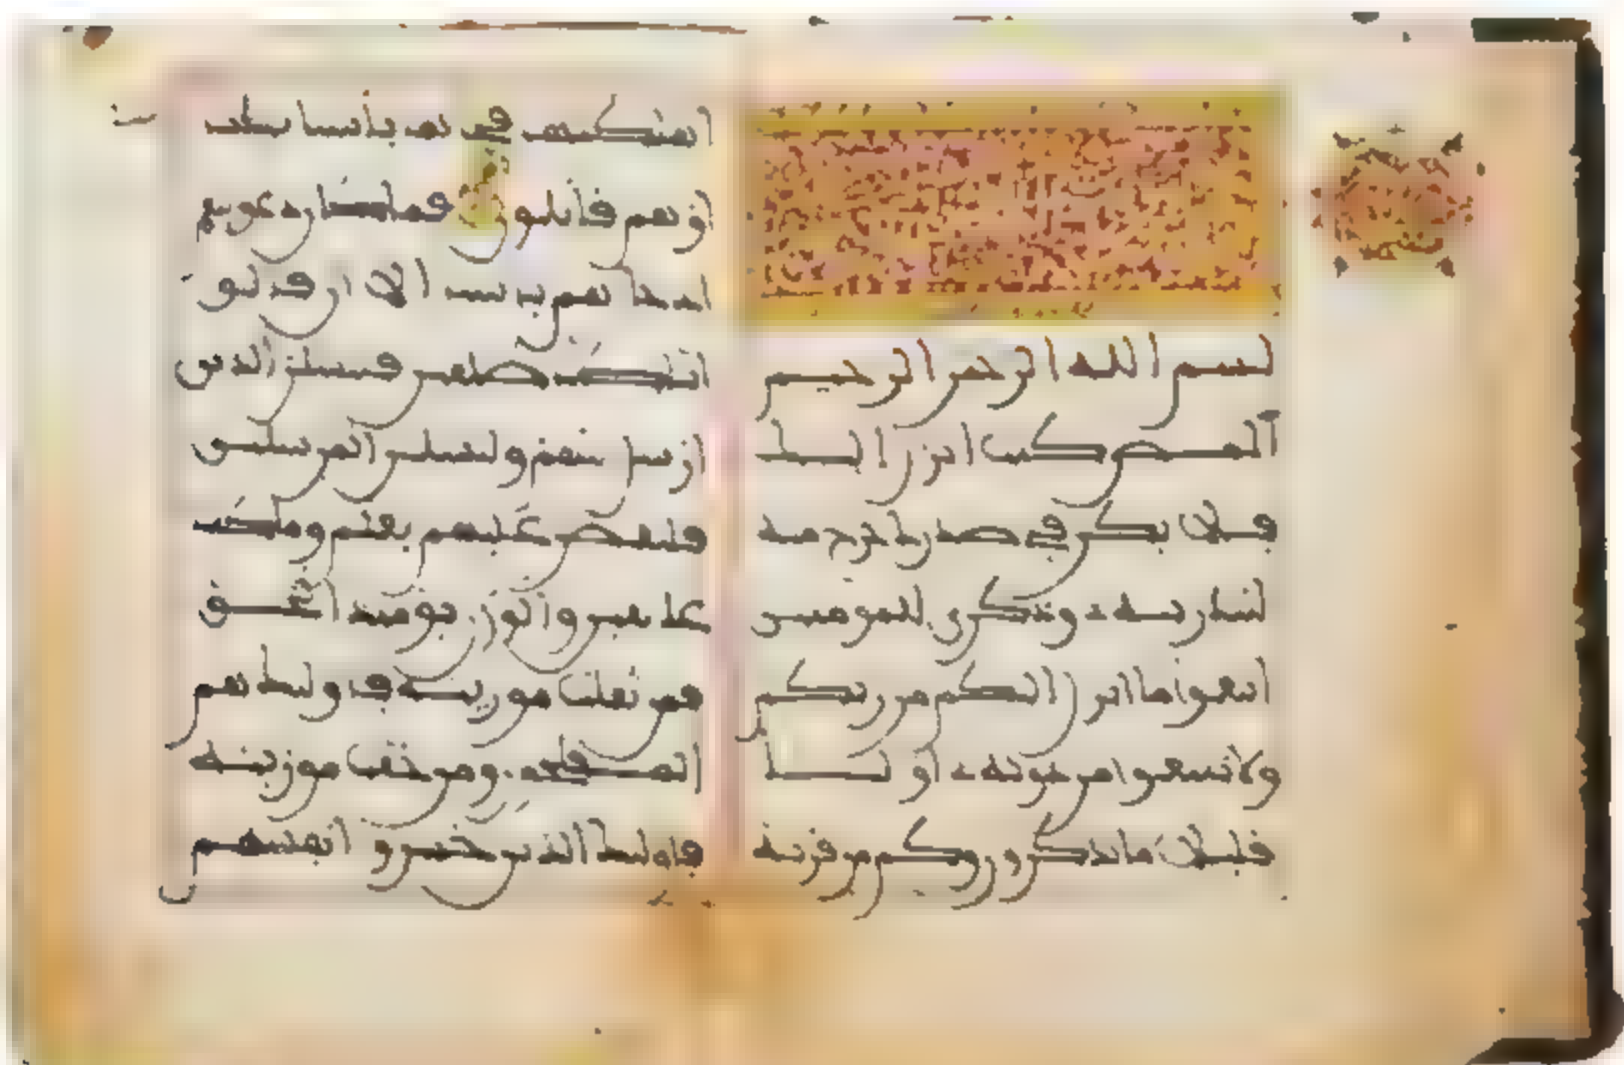 بسم الله الرحمن الرحيم
المص كتب انزل اليك
فلا يكن في صدرك حرج منه
لتنذر به وذكرى للمومنين
اتبعوا ما انزل اليكم من ربكم
ولا تتبعوا من دونه اوليا
قليلا ما تذكرون وكم من قرية
اهلكنها فجاها باسنا بيتا
او هم قايلون فما كان دعويهم
اذ جاهم باسنا الا ان قالوا
انا كنا ظلمين فلنسلن الذين
ارسل اليهم ولنسلن المرسلين
فلنقصن عليهم بعلم وما كنا
غايبين والوزن يوميذ الحق
فمن ثقلت موزينه فاوليك هم
المفلحون ومن خفت موزينه
فاوليك الذين خسروا انفسهم